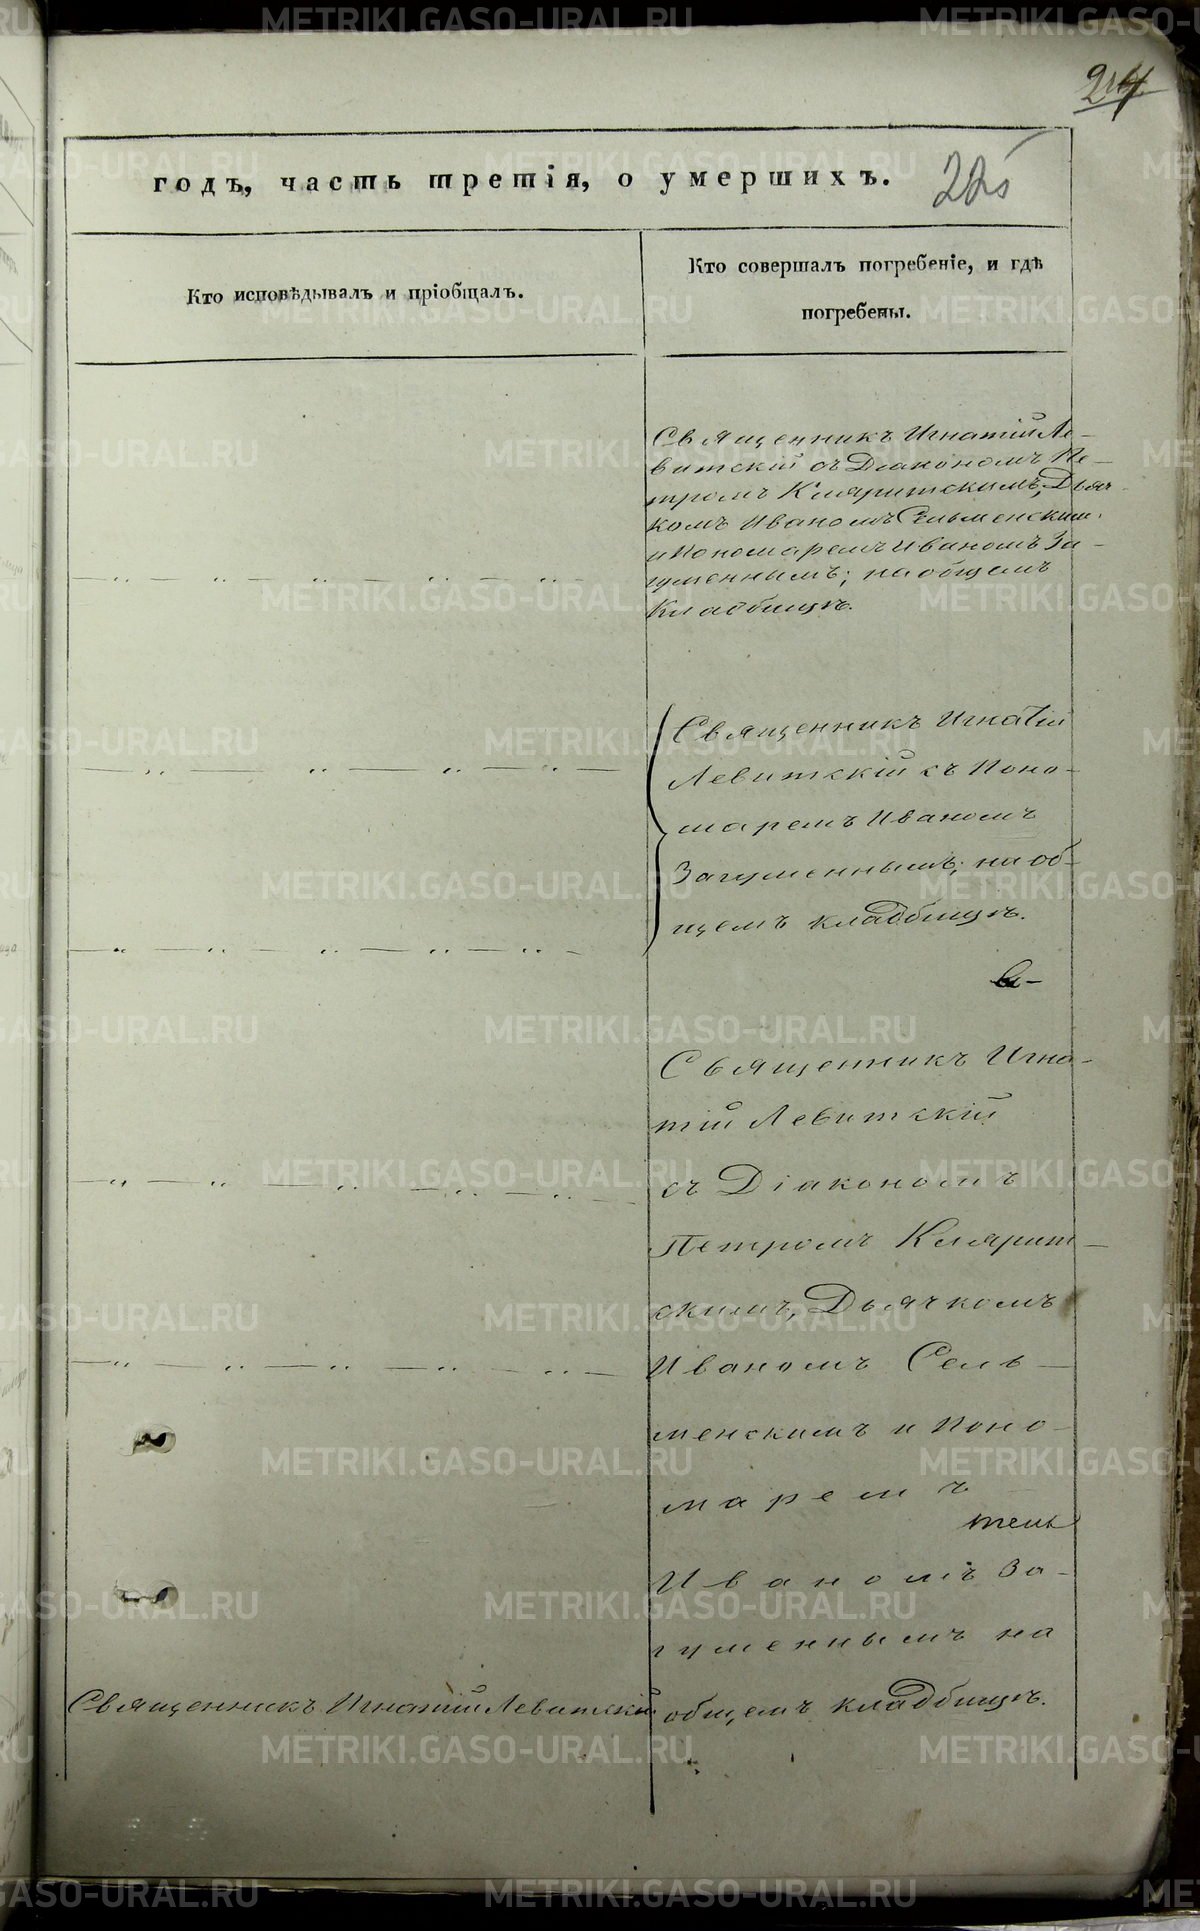 214
годъ, часть третія, о умершихъ.
225
Кто исповѣдывалъ и пріобщалъ.
Кто совершалъ погребеніе, и гдѣ
погребены.
Священникъ Игнатій Ле-
витскій съ Діакономъ Пе-
тромъ Кляритскимъ, Дьяч-
комъ Иваномъ Сельменским.
и Пономаремъ Иваномъ За-
гуменнымъ; на общемъ
Кладбищѣ.
Священникъ Игнатій
Левитскій съ Поно-
маремъ Иваномъ
Загуменнымъ; на об-
щемъ кладбищѣ.
Священникъ Игна-
тій Левитскій
съ Діакономъ
ПетромъКлярит-
скимъ, Дьячкомъ
Иваномъ Сель-
менскимъ и Поно-
маремъ
Иваномъ За-
гуменнымъ на
общемъ кладбищѣ.
Священникъ Игнатій Левитскій
METRIKI.GASO-URAL.RU